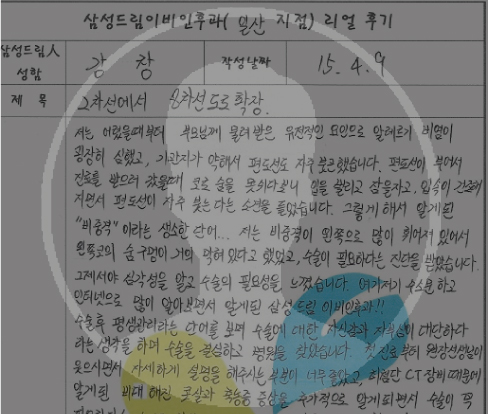 삼성드림이비인후과(일산 지점) 리얼 후기
삼성드림人 성함 강 창 작성날짜 15. 4. 9
제 목 2차선에서 8차선 도로 확장.
저는 어렸을때부터 부모님께 물려받은 유전적인 요인으로 알레르기 비염이
굉장히 심했고, 기관지가 약해서 편도선도 자주 부르텄습니다. 편도선이 부어서
진료를 받으러 갔을때 코로 숨을 못쉬다보니 입을 벌리고 잠을자고, 입속이 건조해
지면서 편도선이 자주 붓는다는 소견을 들었습니다. 그렇게 해서 알게된
"비중격" 이라는 생소한 단어... 저는 비중격이 왼쪽으로 많이 휘어져 있어서
왼쪽코의 숨구멍이 거의 막혀 있다고 했었고, 수술이 필요하다는 진단을 받았습니다.
그제서야 심각성을 알고 수술의 필요성을 느꼈습니다. 여기저기 수소문하고
인터넷으로 많이 알아보면서 알게된 삼성드림 이비인후과!!
수술후 평생관리라는 단어를 보며 수술에 대한 자신감과 자부심이 대단하다
라는 생각을 하며 수술을 결심하고 병원을 찾았습니다. 첫 진료부터 원장선생님이
웃으시면서 자세하게 설명을 해주시는 부분이 너무좋았고, 최첨단 CT 장비 때문에
알게된 비대해진 콧살과 축농증 증상을 추가적으로 알게되면서 수술이 꼭